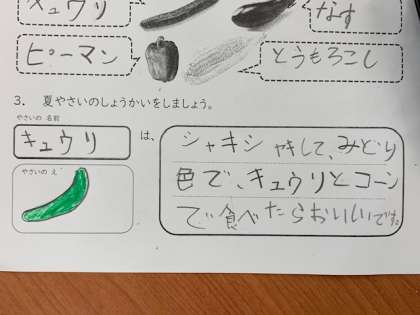 キュウリ
なす
ピーマン
とうもろこし
3. 夏やさいのしょうかいをしましょう。
やさいの 名前
キュウリ
は、
シャキシャキして、みどり
色で、キュウリとコーン
で食べたらおいしいです。
やさいの え